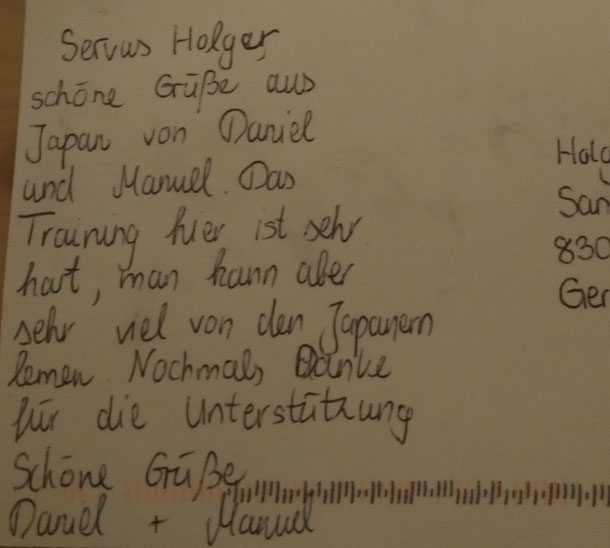 Servus Holger,
schöne Grüße aus
Japan von Daniel
und Manuel. Das
Training hier ist sehr
hart, man kann aber
sehr viel von den Japanern
lernen. Nochmals Danke
für die Unterstützung
Schöne Grüße
Daniel + Manuel
Holg
San
830
Ger